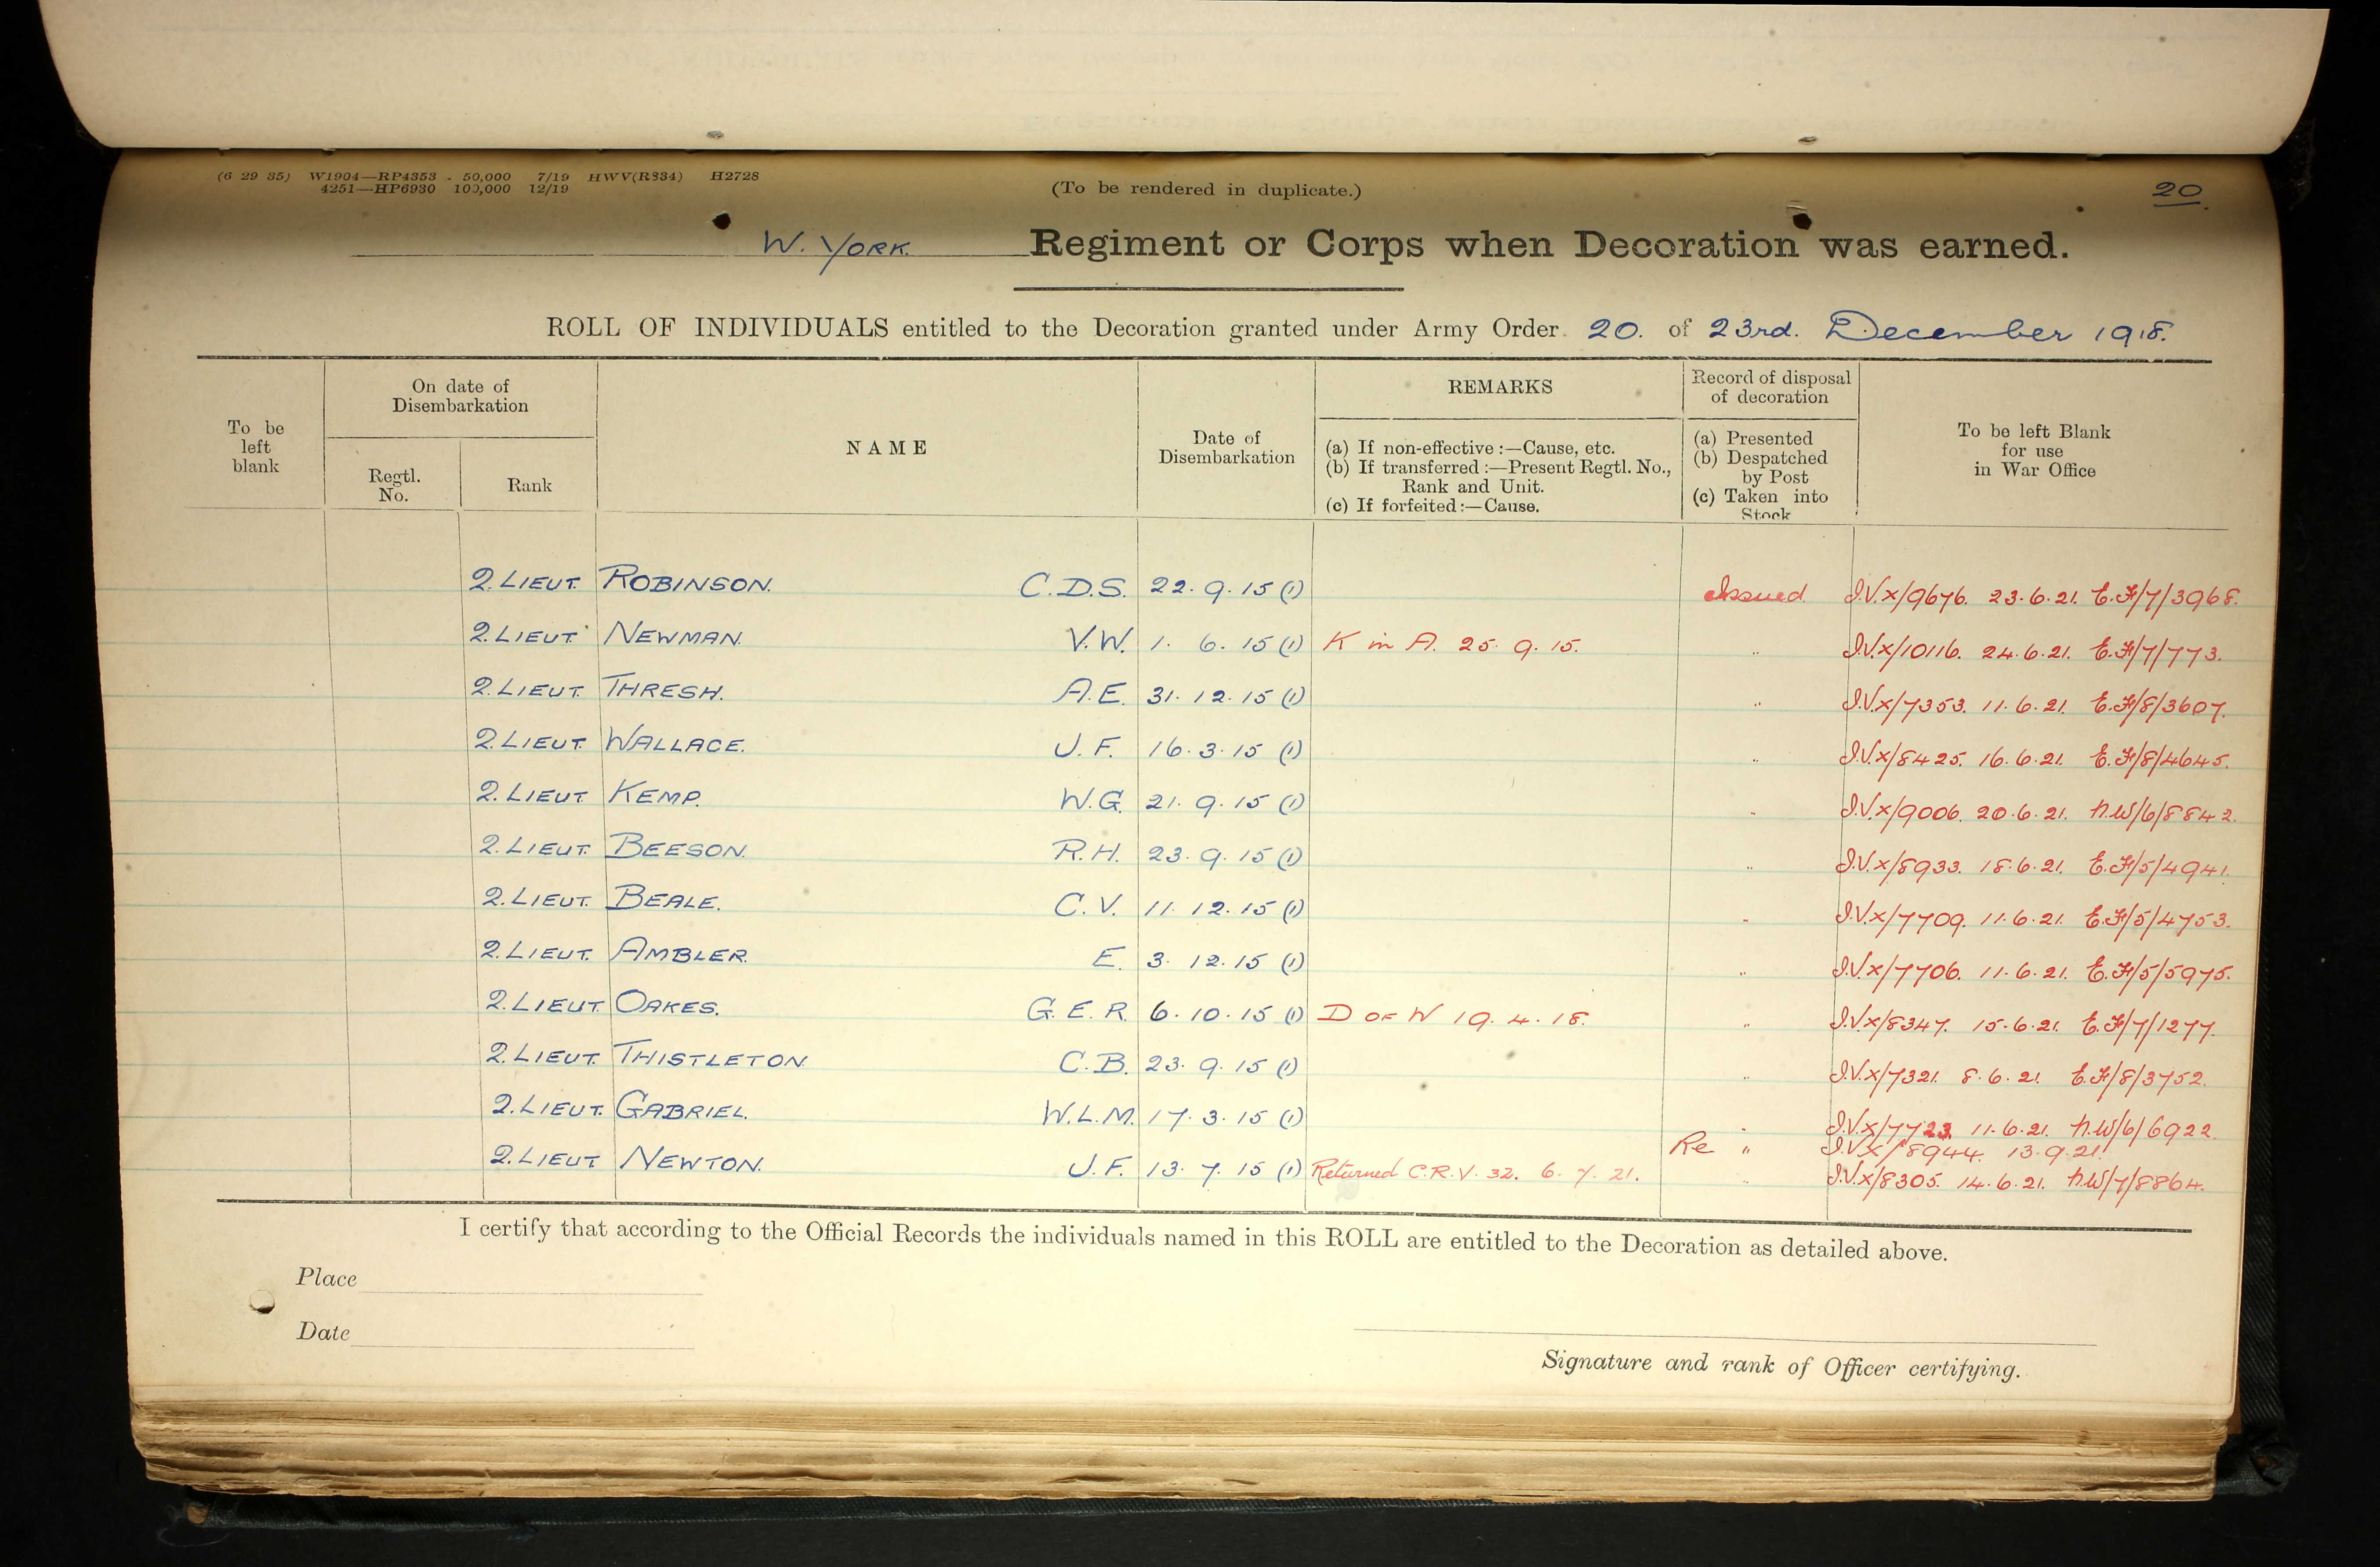 (6 29 35) W1904—RP4353 - 50,000 7/19 HWV(R334) H2728
4251—HP6930 100,000 12/19
(To be rendered in duplicate.)
20
W. YORK. Regiment or Corps when Decoration was earned.
ROLL OF INDIVIDUALS entitled to the Decoration granted under Army Order 20. of 23rd. December 1918.
To be left blank
On date of Disembarkation
Regtl. No.
Rank
NAME
Date of Disembarkation
REMARKS
(a) If non-effective :—Cause, etc.
(b) If transferred :—Present Regtl. No., Rank and Unit.
(c) If forfeited :—Cause.
Record of disposal of decoration
(a) Presented
(b) Despatched by Post
(c) Taken into Stock
To be left Blank for use in War Office
2.LIEUT. ROBINSON. C.D.S. 22.9.15 (1) Issued I.V.X/9676. 23.6.21. E.F/7/3968.
2.LIEUT. NEWMAN. V.W. 1.6.15 (1) K in A. 25.9.15. " I.V.X/10116. 24.6.21. E.F/7/773.
2.LIEUT. THRESH. A.E. 31.12.15 (1) " I.V.X/7353. 11.6.21. E.F/8/3607.
2.LIEUT. WALLACE. J.F. 16.3.15 (1) " I.V.X/8425. 16.6.21. E.F/8/4645.
2.LIEUT. KEMP. W.G. 21.9.15 (1) " I.V.X/9006. 20.6.21. N.W/6/8842.
2.LIEUT. BEESON. R.H. 23.9.15 (1) " I.V.X/8933. 18.6.21. E.F/5/4941.
2.LIEUT. BEALE. C.V. 11.12.15 (1) " I.V.X/7709. 11.6.21. E.F/5/4753.
2.LIEUT. AMBLER. E. 3.12.15 (1) " I.V.X/7706. 11.6.21. E.F/5/5975.
2.LIEUT. OAKES. G.E.R. 6.10.15 (1) D OF W 19.4.18. " I.V.X/8347. 15.6.21. E.F/7/1277.
2.LIEUT. THISTLETON. C.B. 23.9.15 (1) " I.V.X/7321. 8.6.21. E.F/8/3752.
2.LIEUT. GABRIEL. W.L.M. 17.3.15 (1) " I.V.X/7723. 11.6.21. N.W/6/6922.
Re " I.V.X/8944. 13.9.21.
2.LIEUT. NEWTON. J.F. 13.7.15 (1) Returned C.R.V. 32. 6.7.21. " I.V.X/8305. 14.6.21. N.W/7/8864.
I certify that according to the Official Records the individuals named in this ROLL are entitled to the Decoration as detailed above.
Place
Date
Signature and rank of Officer certifying.